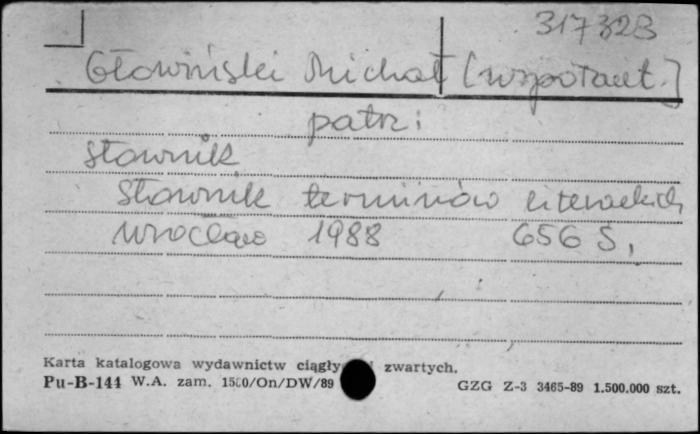 317323
Głowiński Michał [współaut.]
patrz:
Słownik
Słownik terminów literackich
Wrocław 1988 656 S,
Karta katalogowa wydawnictw ciągły zwartych.
Pu-B-144 W.A. zam. 1500/On/DW/89 GZG Z-3 3465-89 1.500.000 szt.